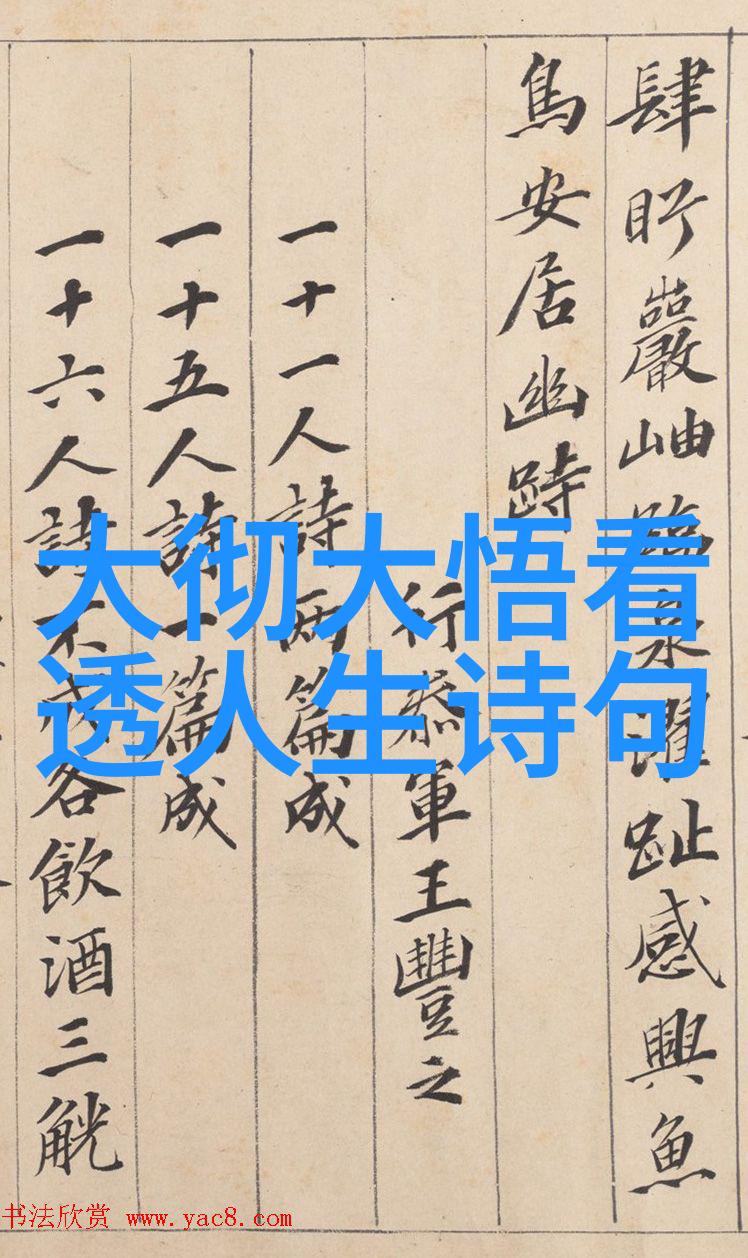 肆眄巖岫臨泉濯趾感興魚
鳥安居幽跱
行叅軍王豐之
一十一人詩兩篇成
一十五人詩一篇成
一十六人詩不成各飲酒三觥
大彻大悟看
透人生诗句
书法欣赏 www.yac8.com